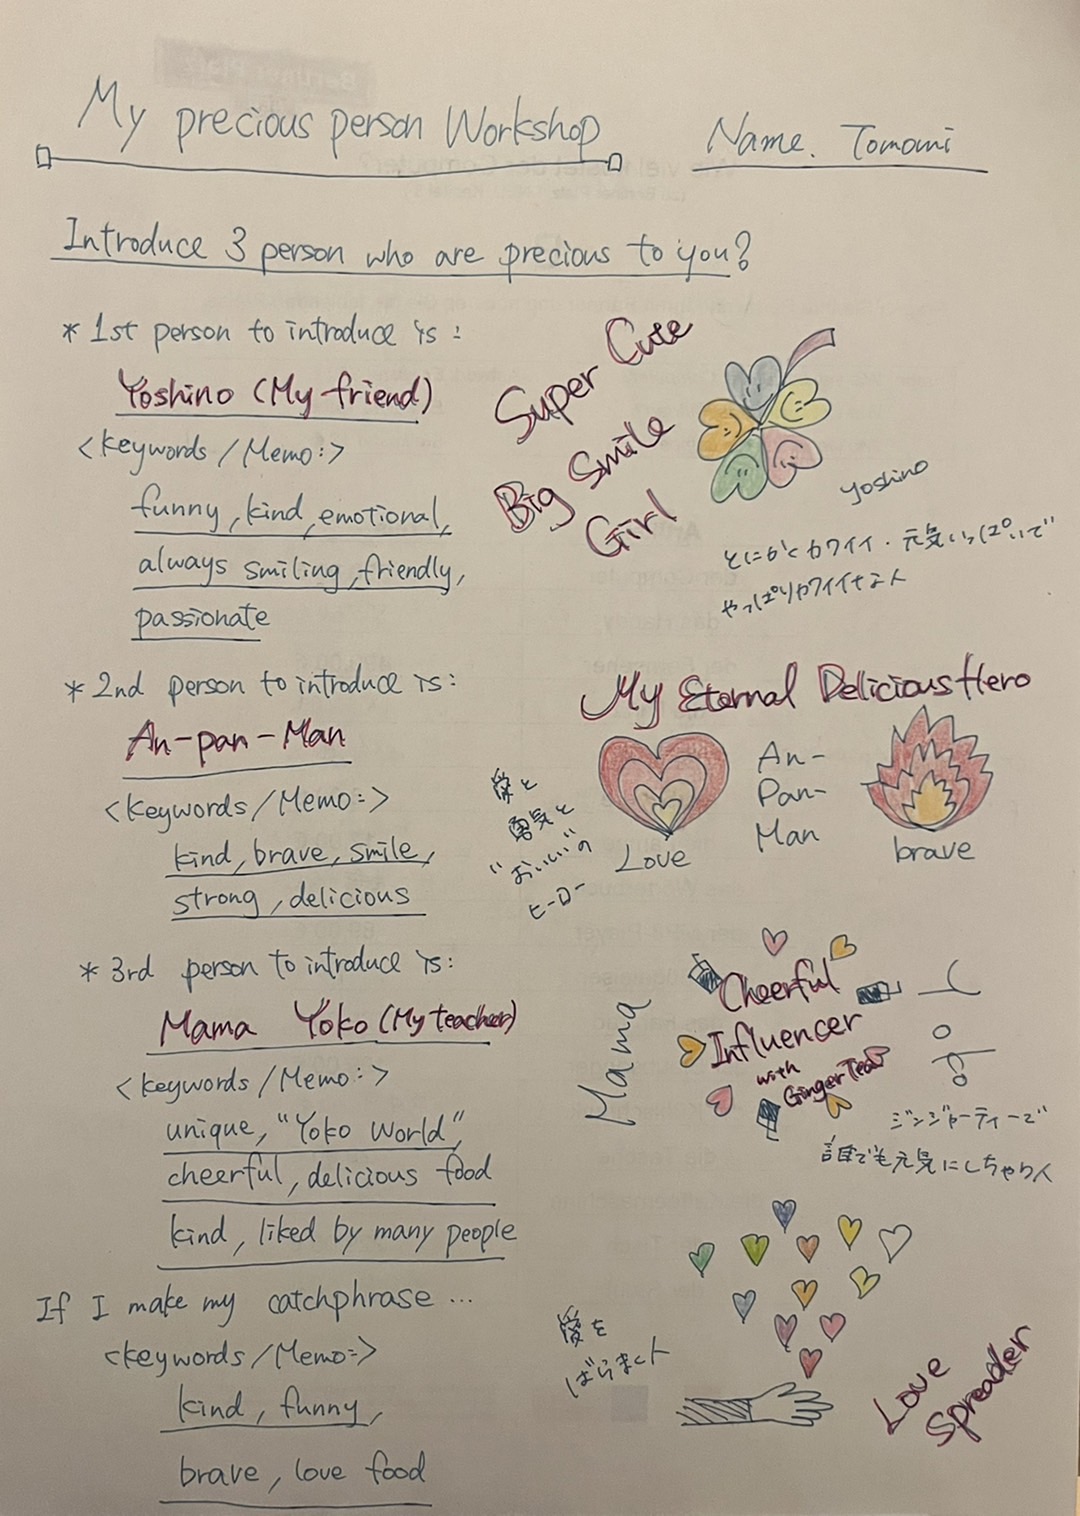 My precious person Workshop
Name. Tomomi
Introduce 3 person who are precious to you?
* 1st person to introduce is:
Yoshino (My friend)
<keywords / Memo:>
funny, kind, emotional,
always smiling, friendly,
passionate
Super Cute
Big Smile
Girl
Yoshino
とにかくカワイイ・元気いっぱいで
やっぱりカワイイな人
* 2nd person to introduce is:
An-pan-Man
<keywords / Memo:>
kind, brave, smile,
strong, delicious
My Eternal Delicious Hero
愛と
勇気と
"おいしい"の
ヒーロー
Love
An-
Pan-
Man
brave
* 3rd person to introduce is:
Mama Yoko (My teacher)
<keywords / Memo:>
unique, "Yoko World",
cheerful, delicious food
kind, liked by many people
Mama
Cheerful
Influencer
with
Ginger Tea
ジンジャーティーで
誰でも元気にしちゃう人
If I make my catchphrase ...
<keywords / Memo:>
kind, funny,
brave, love food
愛を
ばらまく人
Love
Spreader